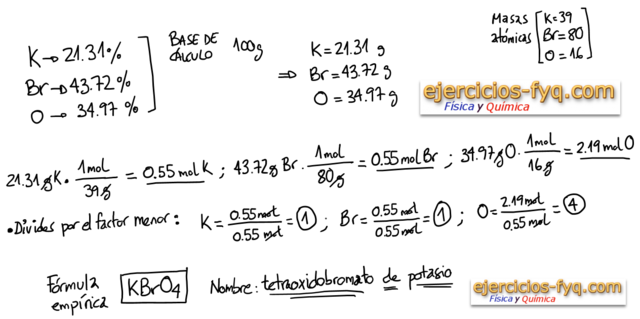 K → 21.31 %
Br → 43.72 %
O → 34.97 %
BASE DE CÁLCULO 100g
⇒
K = 21.31 g
Br = 43.72 g
O = 34.97 g
Masas atómicas
K = 39
Br = 80
O = 16
ejercicios-fyq.com
Física y Química
21.31 g K · 1 mol / 39 g = 0.55 mol K ; 43.72 g Br · 1 mol / 80 g = 0.55 mol Br ; 34.97 g O · 1 mol / 16 g = 2.19 mol O
• Divides por el factor menor : K = 0.55 mol / 0.55 mol = 1 ; Br = 0.55 mol / 0.55 mol = 1 ; O = 2.19 mol / 0.55 mol = 4
Fórmula empírica KBrO4 Nombre : tetraoxidobromato de potasio
ejercicios-fyq.com
Física y Química